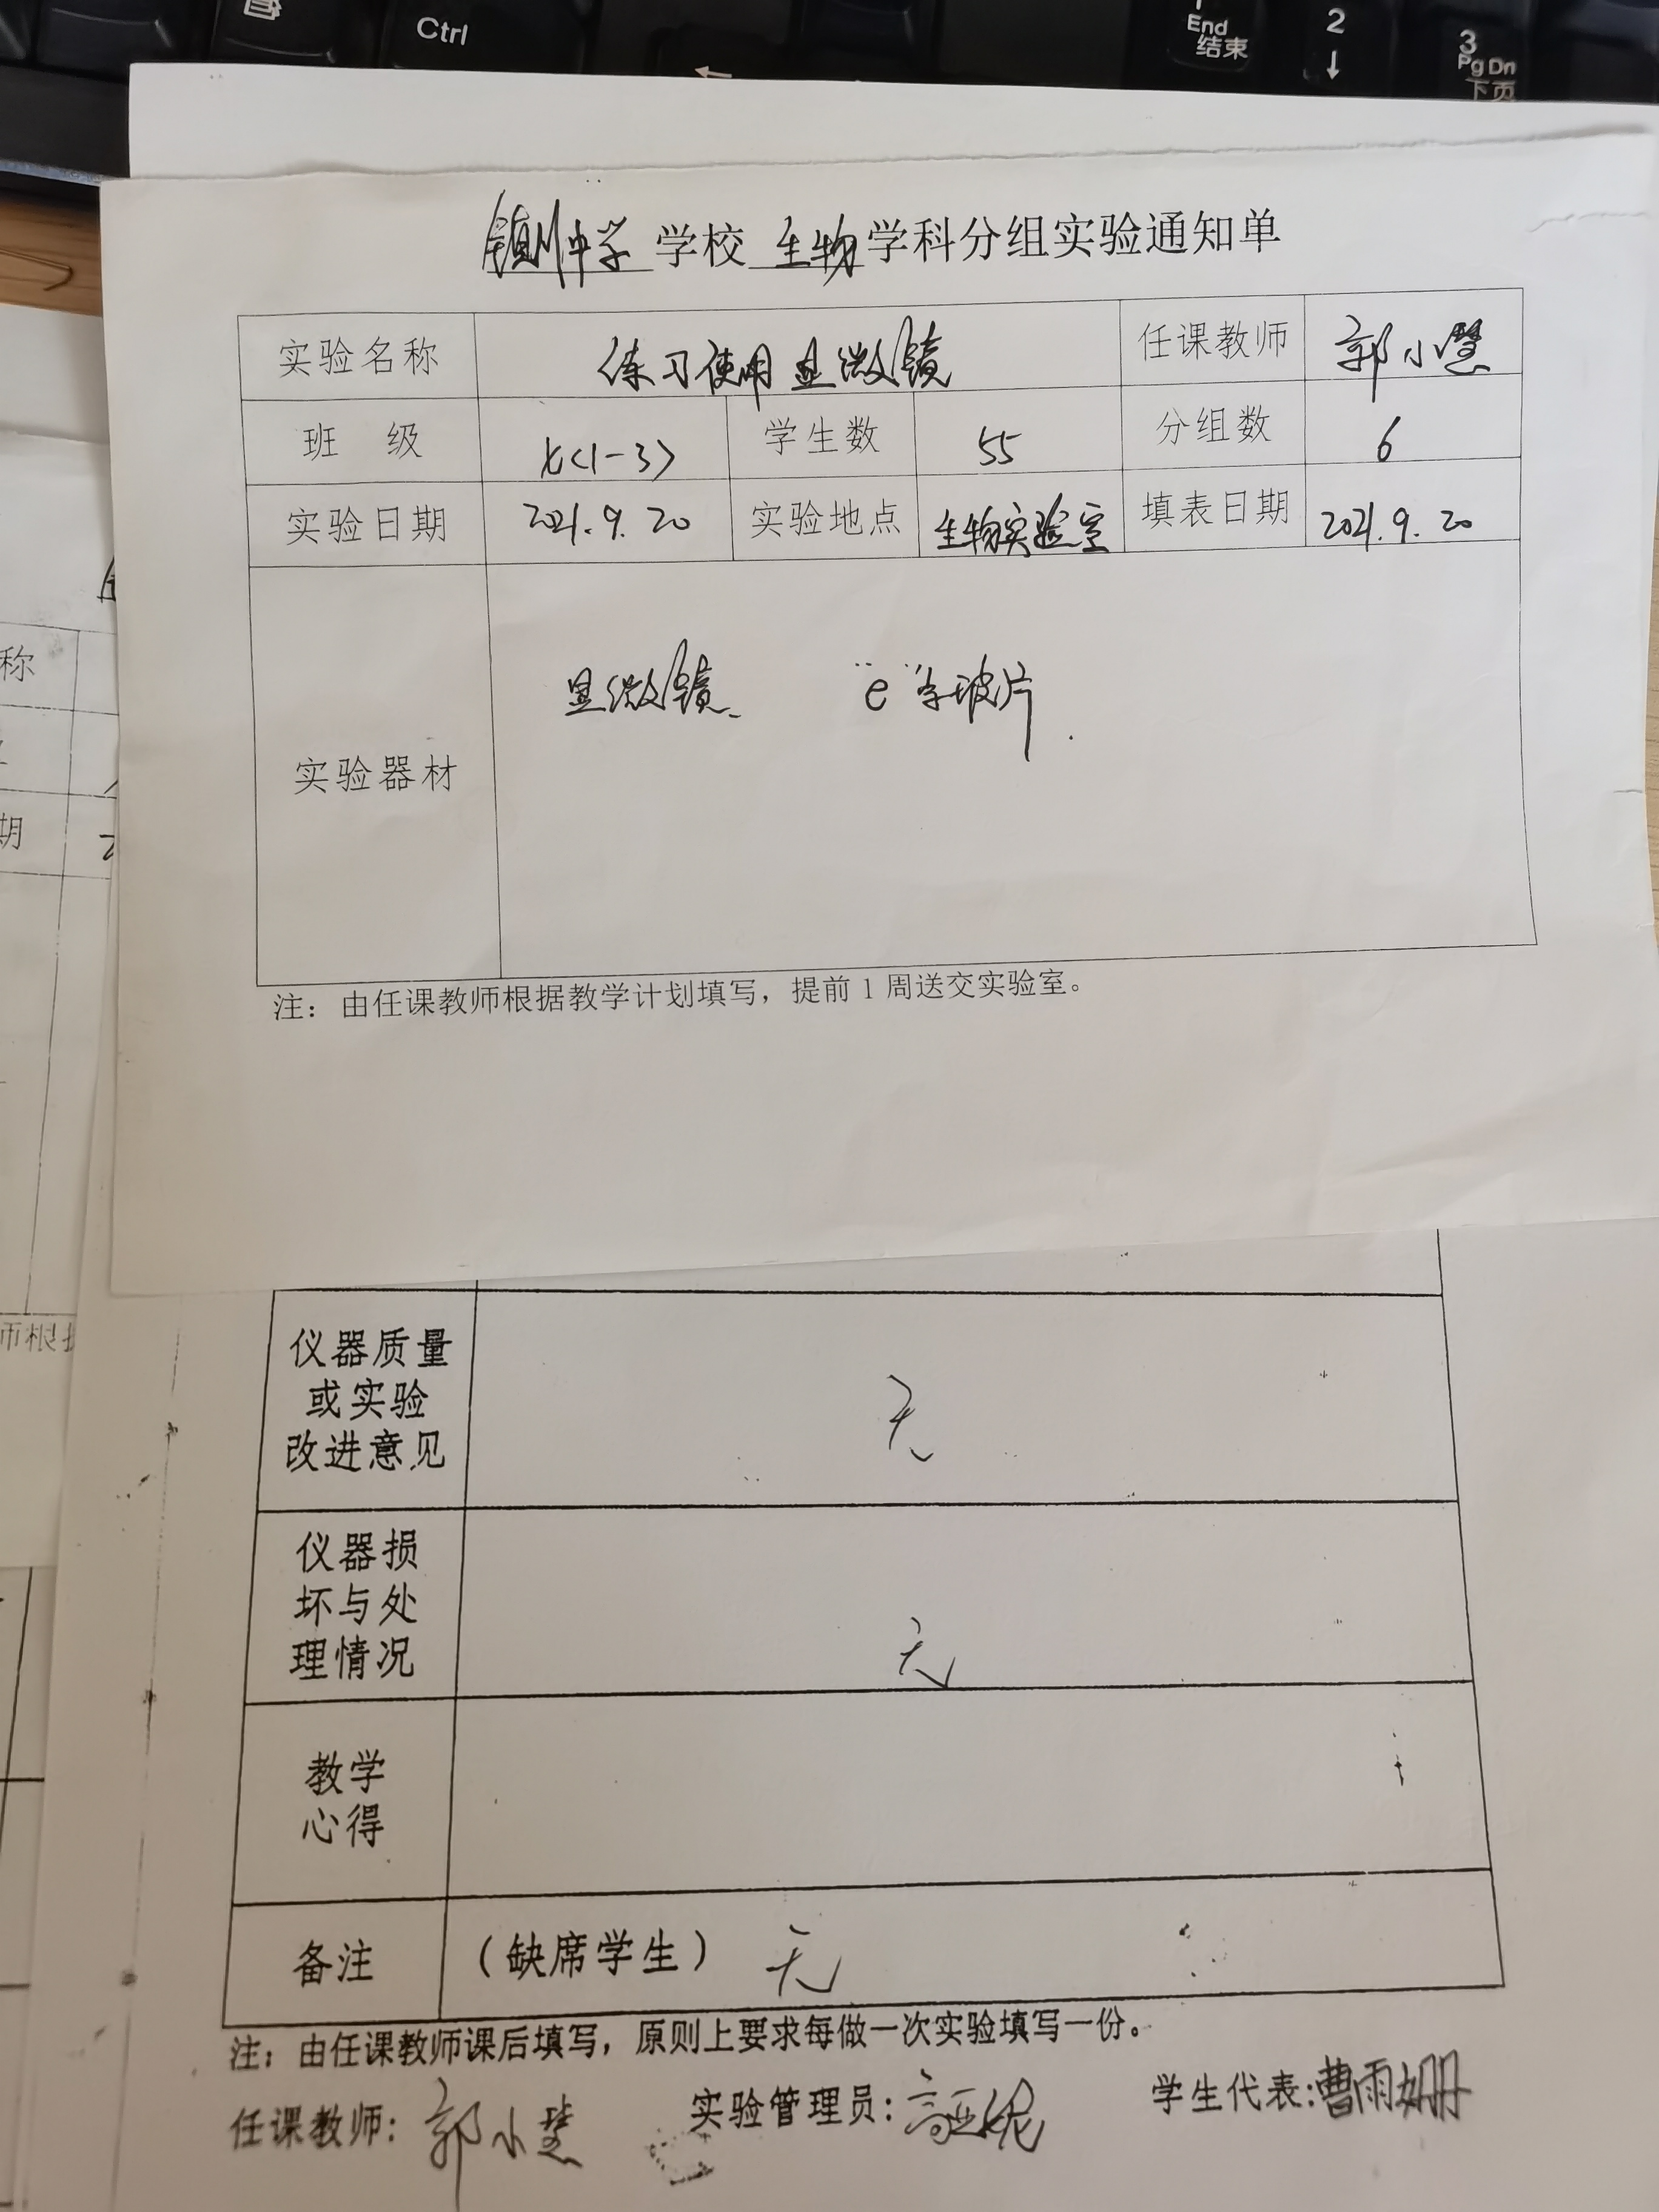 Ctrl
End
结束
2
↓
3
Pg Dn
下页
镇川中学 学校 生物 学科分组实验通知单
实验名称 练习使用显微镜 任课教师 郭小慧
班 级 七(1-3) 学生数 55 分组数 6
实验日期 2021.9.20 实验地点 生物实验室 填表日期 2021.9.20
实验器材 显微镜、 "e"字玻片.
注：由任课教师根据教学计划填写，提前1周送交实验室。
称
期
师根
仪器质量
或实验
改进意见
无
仪器损
坏与处
理情况
无
教学
心得
备注 （缺席学生） 无
注：由任课教师课后填写，原则上要求每做一次实验填写一份。
任课教师：郭小慧 实验管理员：高亚妮 学生代表：曹雨姗